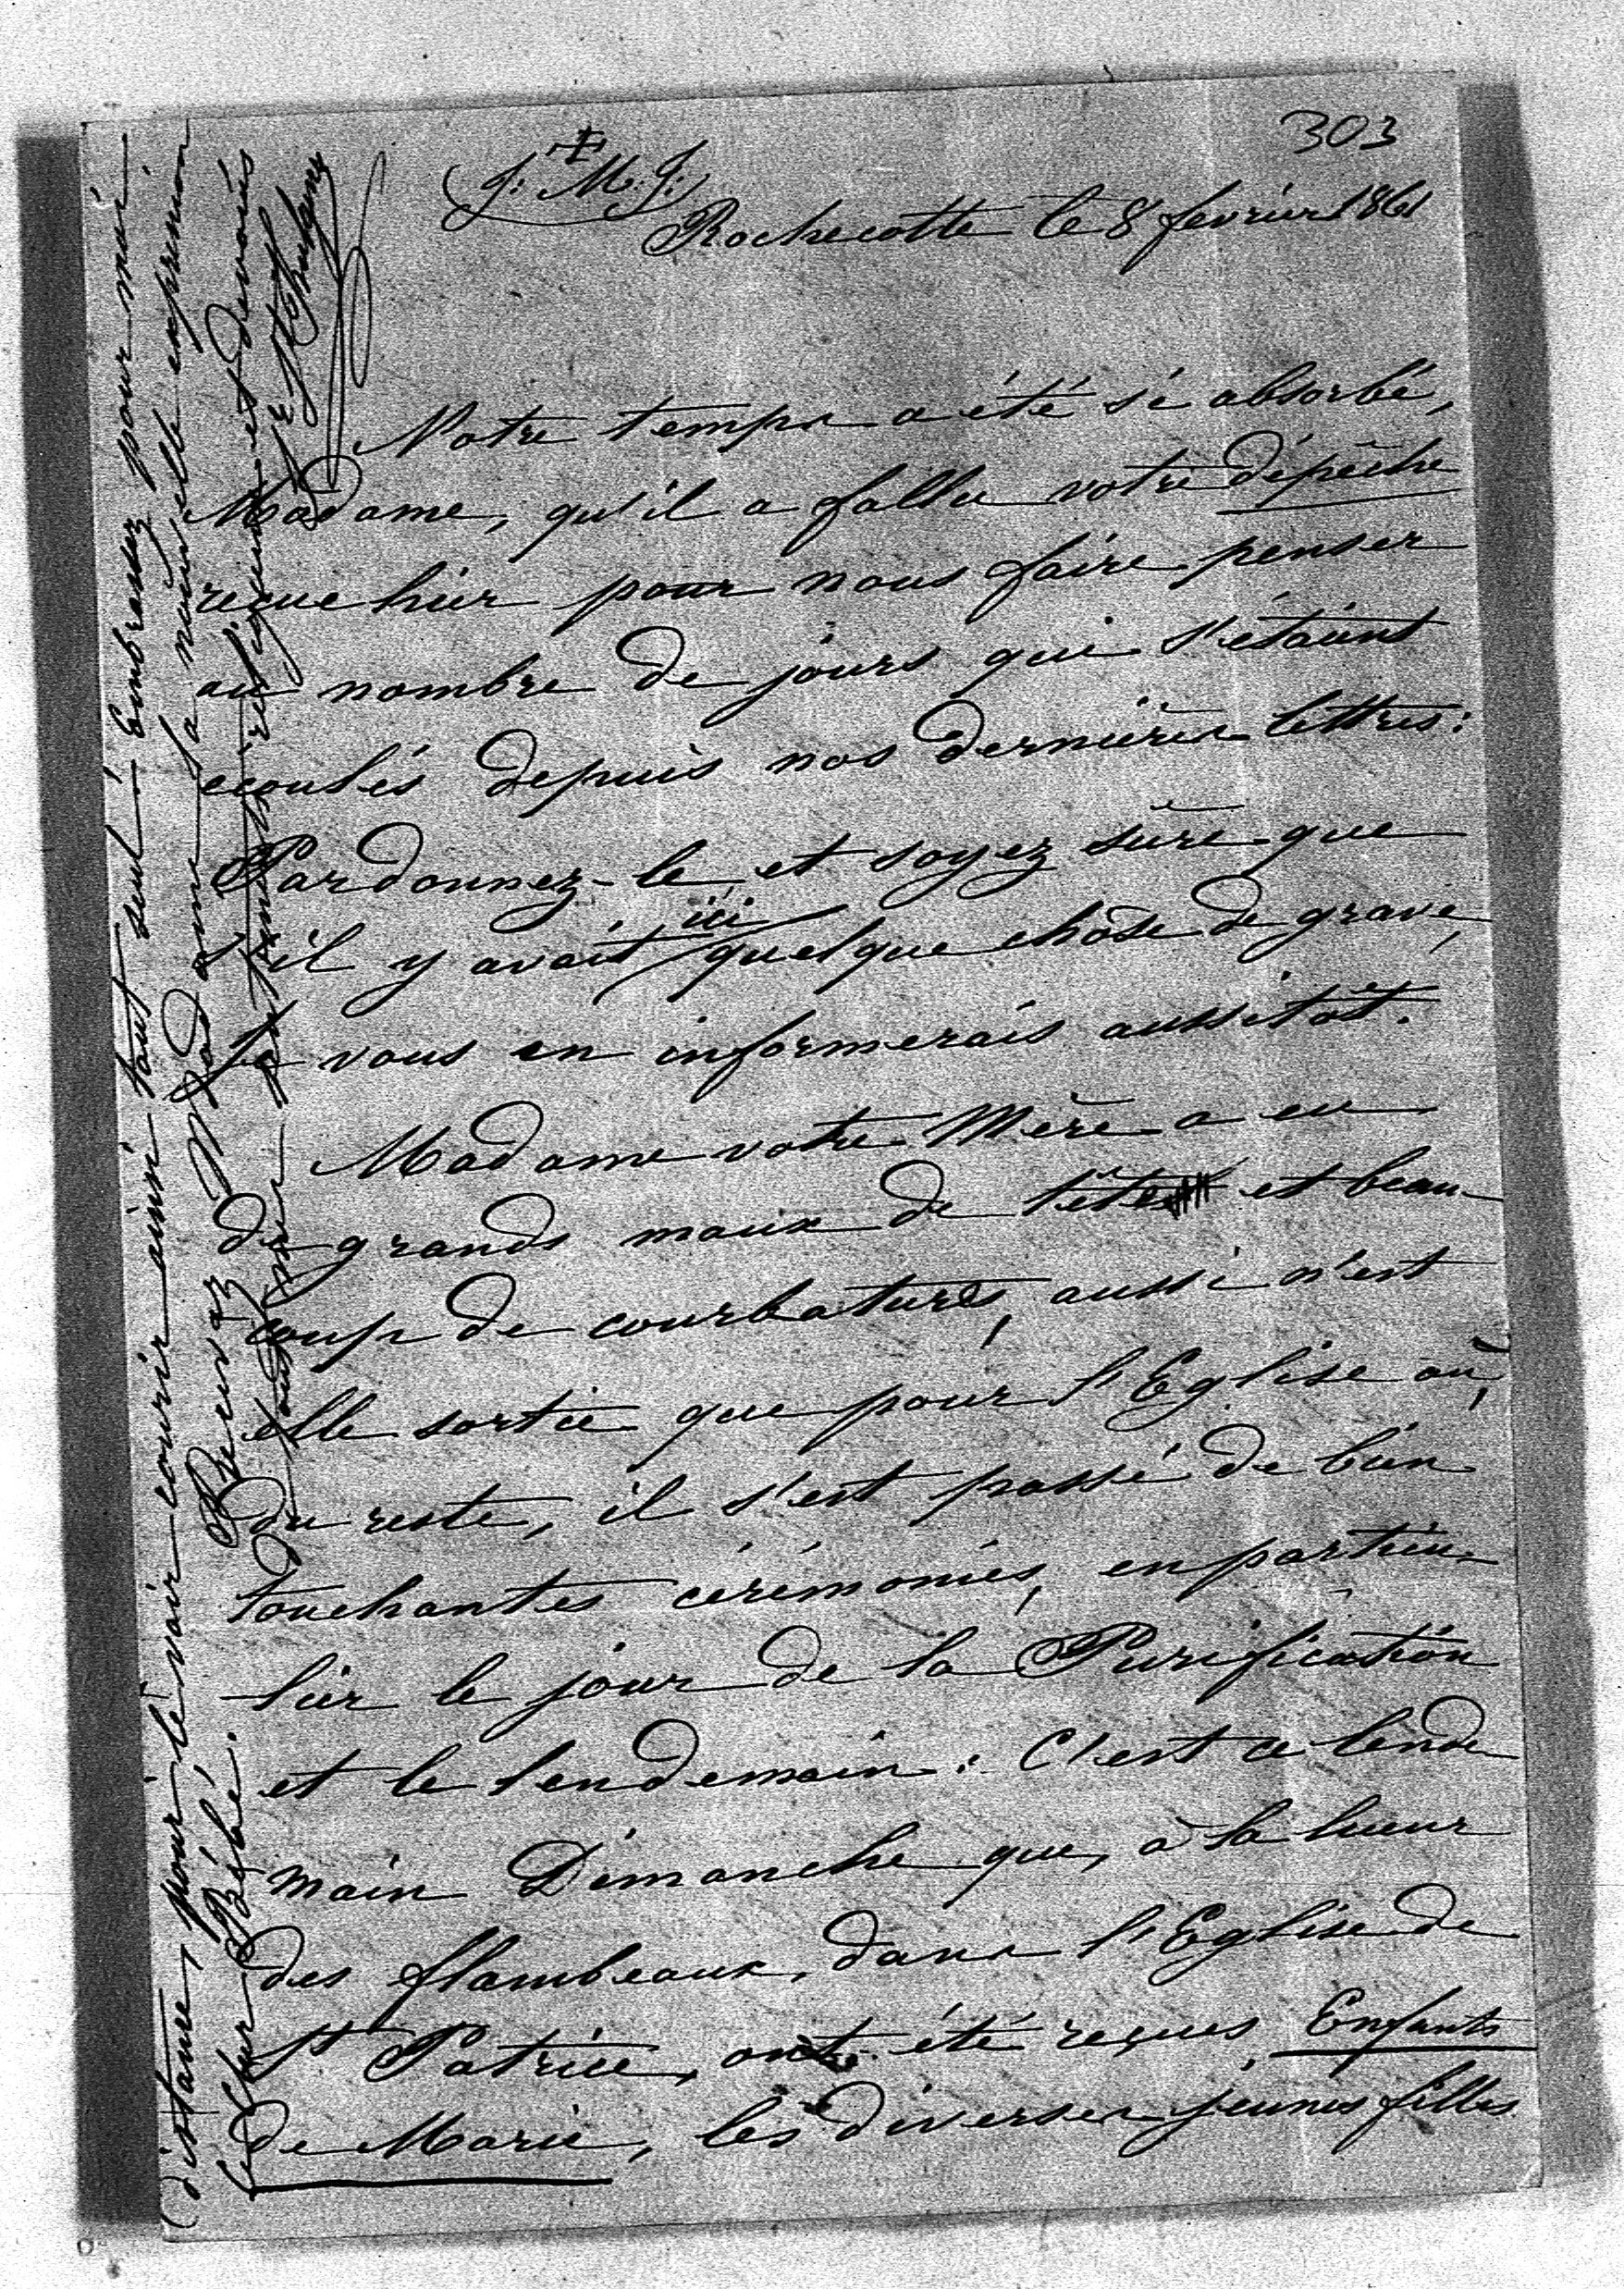 303
J. M. J.
Rochecotte le 8 fevrier 1861
Notre temps a été si absorbé,
Madame, qu'il a fallu votre dépêche
reçue hier pour nous faire penser
au nombre de jours qui s'étaient
écoulés depuis nos dernières lettres:
Pardonnez-le et soyez sûre que
s'il y avait ici quelque chose de grave,
je vous en informerais aussitôt.
Madame votre Mère a eu
de grands maux de tête et beau-
coup de courbatures, aussi n'est
elle sortie que pour l'Eglise où,
du reste, il s'est passé de bien
touchantes cérémonies, en particu-
lier le jour de la Purification
et le lendemain: C'est ce lende
main Dimanche que, à la lueur
des flambeaux, dans l'Eglise de
St Patrice, ont été reçues Enfants
de Marie, les diverses jeunes filles
distance, pour le voir courir ainsi tout seul! Embrassez pour moi
le cher Bébé. Recevez Madame la nouvelle expression
de tous mes sentiments respectueux et dévoués